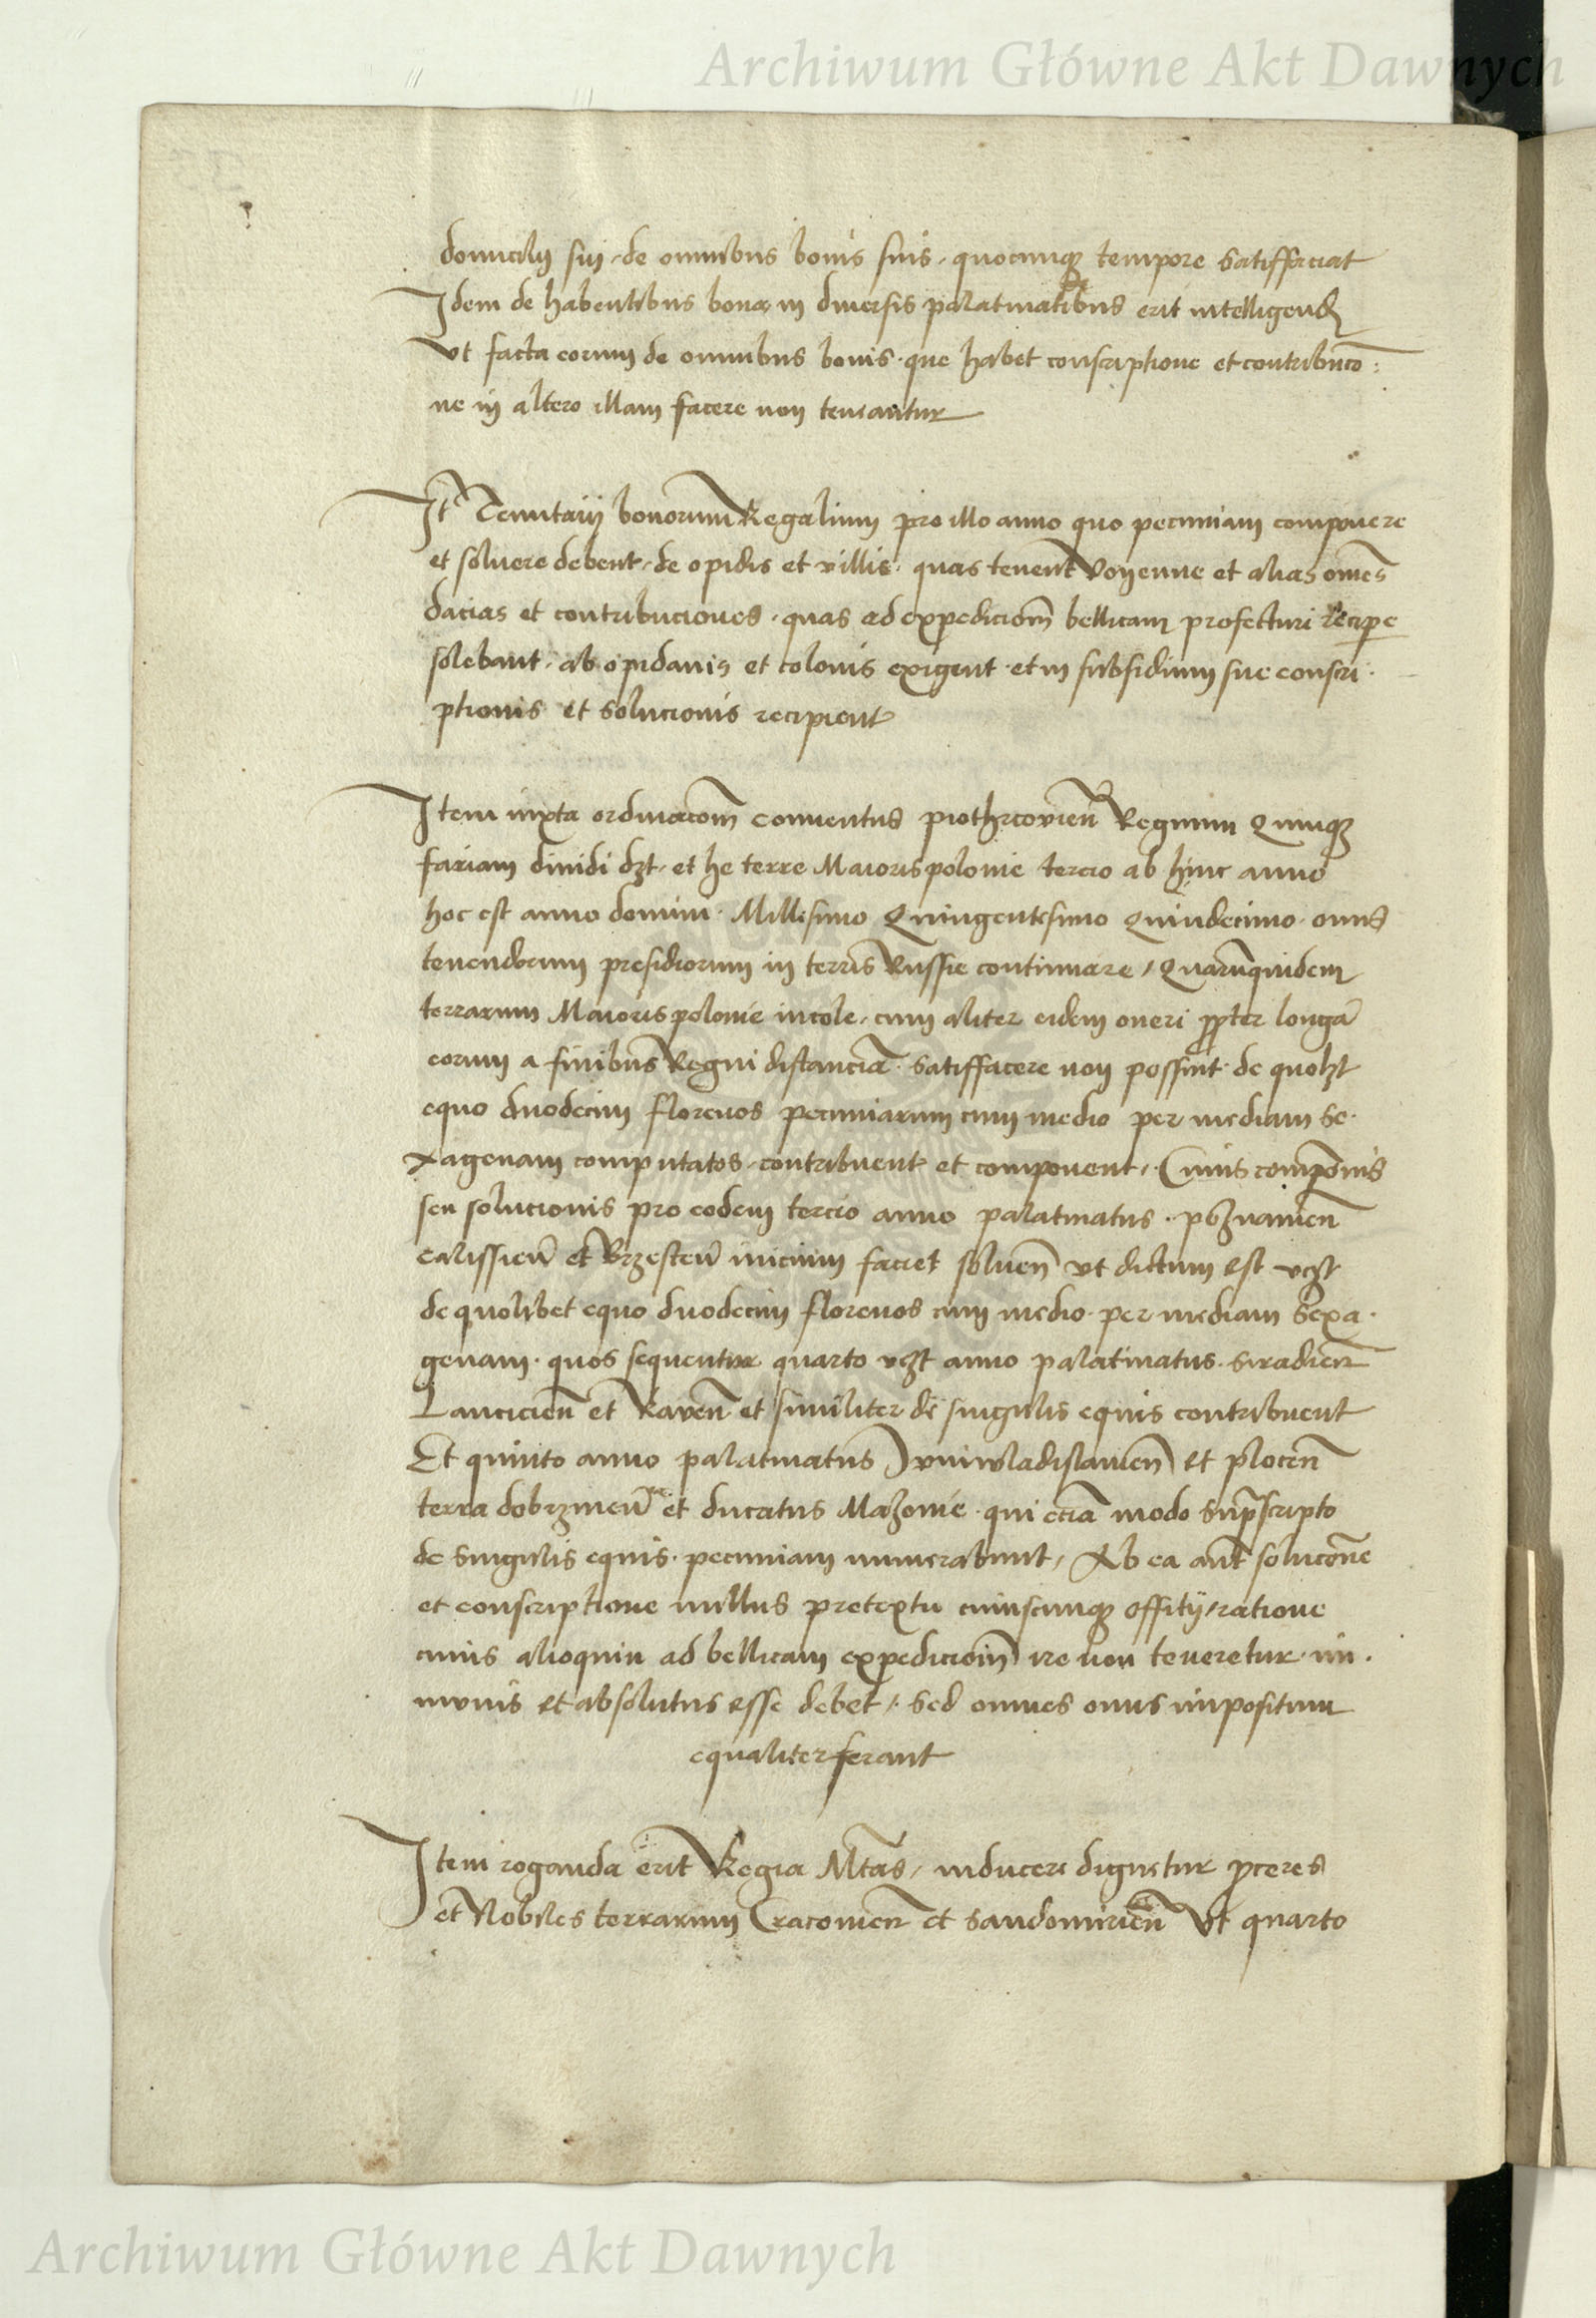 Archiwum Główne Akt Dawnych
domicilij sui, de omnibus bonis suis, quocunqꝫ tempore satisfaciat
Idem de habentibus bona in diuersis palatinatibus erit intelligend
vt facta eorum de omnibus bonis que habet conscriptione et contribucio-
ne in altero illam facere non teneantur
Itē Tenutarij bonorum Regalium pro illo anno quo pecuniam componere
et soluere debent, de opidis et villis, quas tenent Voyenne et alias omēs
dacias et contribuciones, quas ad expedicionē bellicam profecturi recipe
solebant, ab opidanis et colonis exigent et in subsidium sue conscri-
ptionis et solucionis recipient
Item iuxta ordinacionē conuentus piothrcovien̄ Regnum Quinqꝫ
fariam diuidi dꝫt, et he terre Maioris polonie tercio ab hinc anno
hoc est anno domini Millesimo Quingentesimo Quindecimo onus
tenendorum presidiorum in terris Russie continuare, Quarūquidem
terrarum Maioris polonie incole, cum aliter eidem oneri ꝓpter longā
eorum a finibus Regni distanciā satisfacere non possint de quolꝫt
equo duodecim florenos pecuniarum cum medio per mediam se-
xagenam computatos, contribuent et component, Cuius compōnis
seu solucionis pro eodem tercio anno palatinatus poznanien̄
calissien̄ et Brzesten̄ inicium faciet soluen̄ vt dictum est vꝫt
de quolibet equo duodecim florenos cum medio per mediam sexa-
genam quos sequentur quarto vꝫt anno palatinatus siradien̄
Lancicien̄ et Raven̄ et similiter de singulis equis contribuent
Et quinto anno palatinatus Iuniwladislauien̄ et plocen̄
terra dobrzinen̄ et ducatus Mazouie qui eciā modo suprascripto
de singulis equis pecuniam numerabunt, Ab ea aūt solucōne
et conscriptione nullus pretextu cuiuscunqꝫ offitij, ratione
cuius alioquin ad bellicam expedicionē ire non teneretur im-
munis et absolutus esse debet, sed omnes onus impositum
equaliter ferant
Item roganda erit Regia Mtās, inducere dignetur ꝓceres
et Nobiles terrarum Cracouien̄ et sandomirien̄ Vt quarto
Archiwum Główne Akt Dawnych